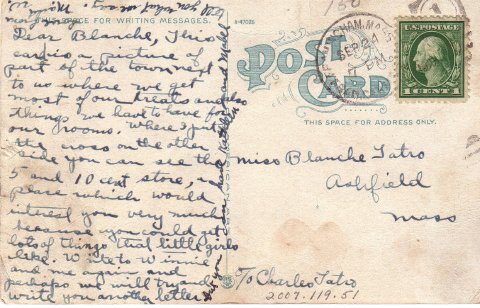 THIS SPACE FOR WRITING MESSAGES.
A-47025
Dear Blanche, This
card is a picture of
part of the town next
to us where we get
most of our treats and also
things we have to have for
our rooms. Where I put
the cross on the other
side you can see the
5 and 10 cent store, a
place which would
interest you very much
because you could get
lots of things that little girls
like. Write to Winnie
and me again and
perhaps we will try and
write you another letter
POST CARD
THIS SPACE FOR ADDRESS ONLY.
FRAMINGHAM, MASS.
SEP 21
PM
U.S. POSTAGE
1 CENT 1
Miss Blanche Tatro
Ashfield
Mass
To Charles Tatro
2007.119.51